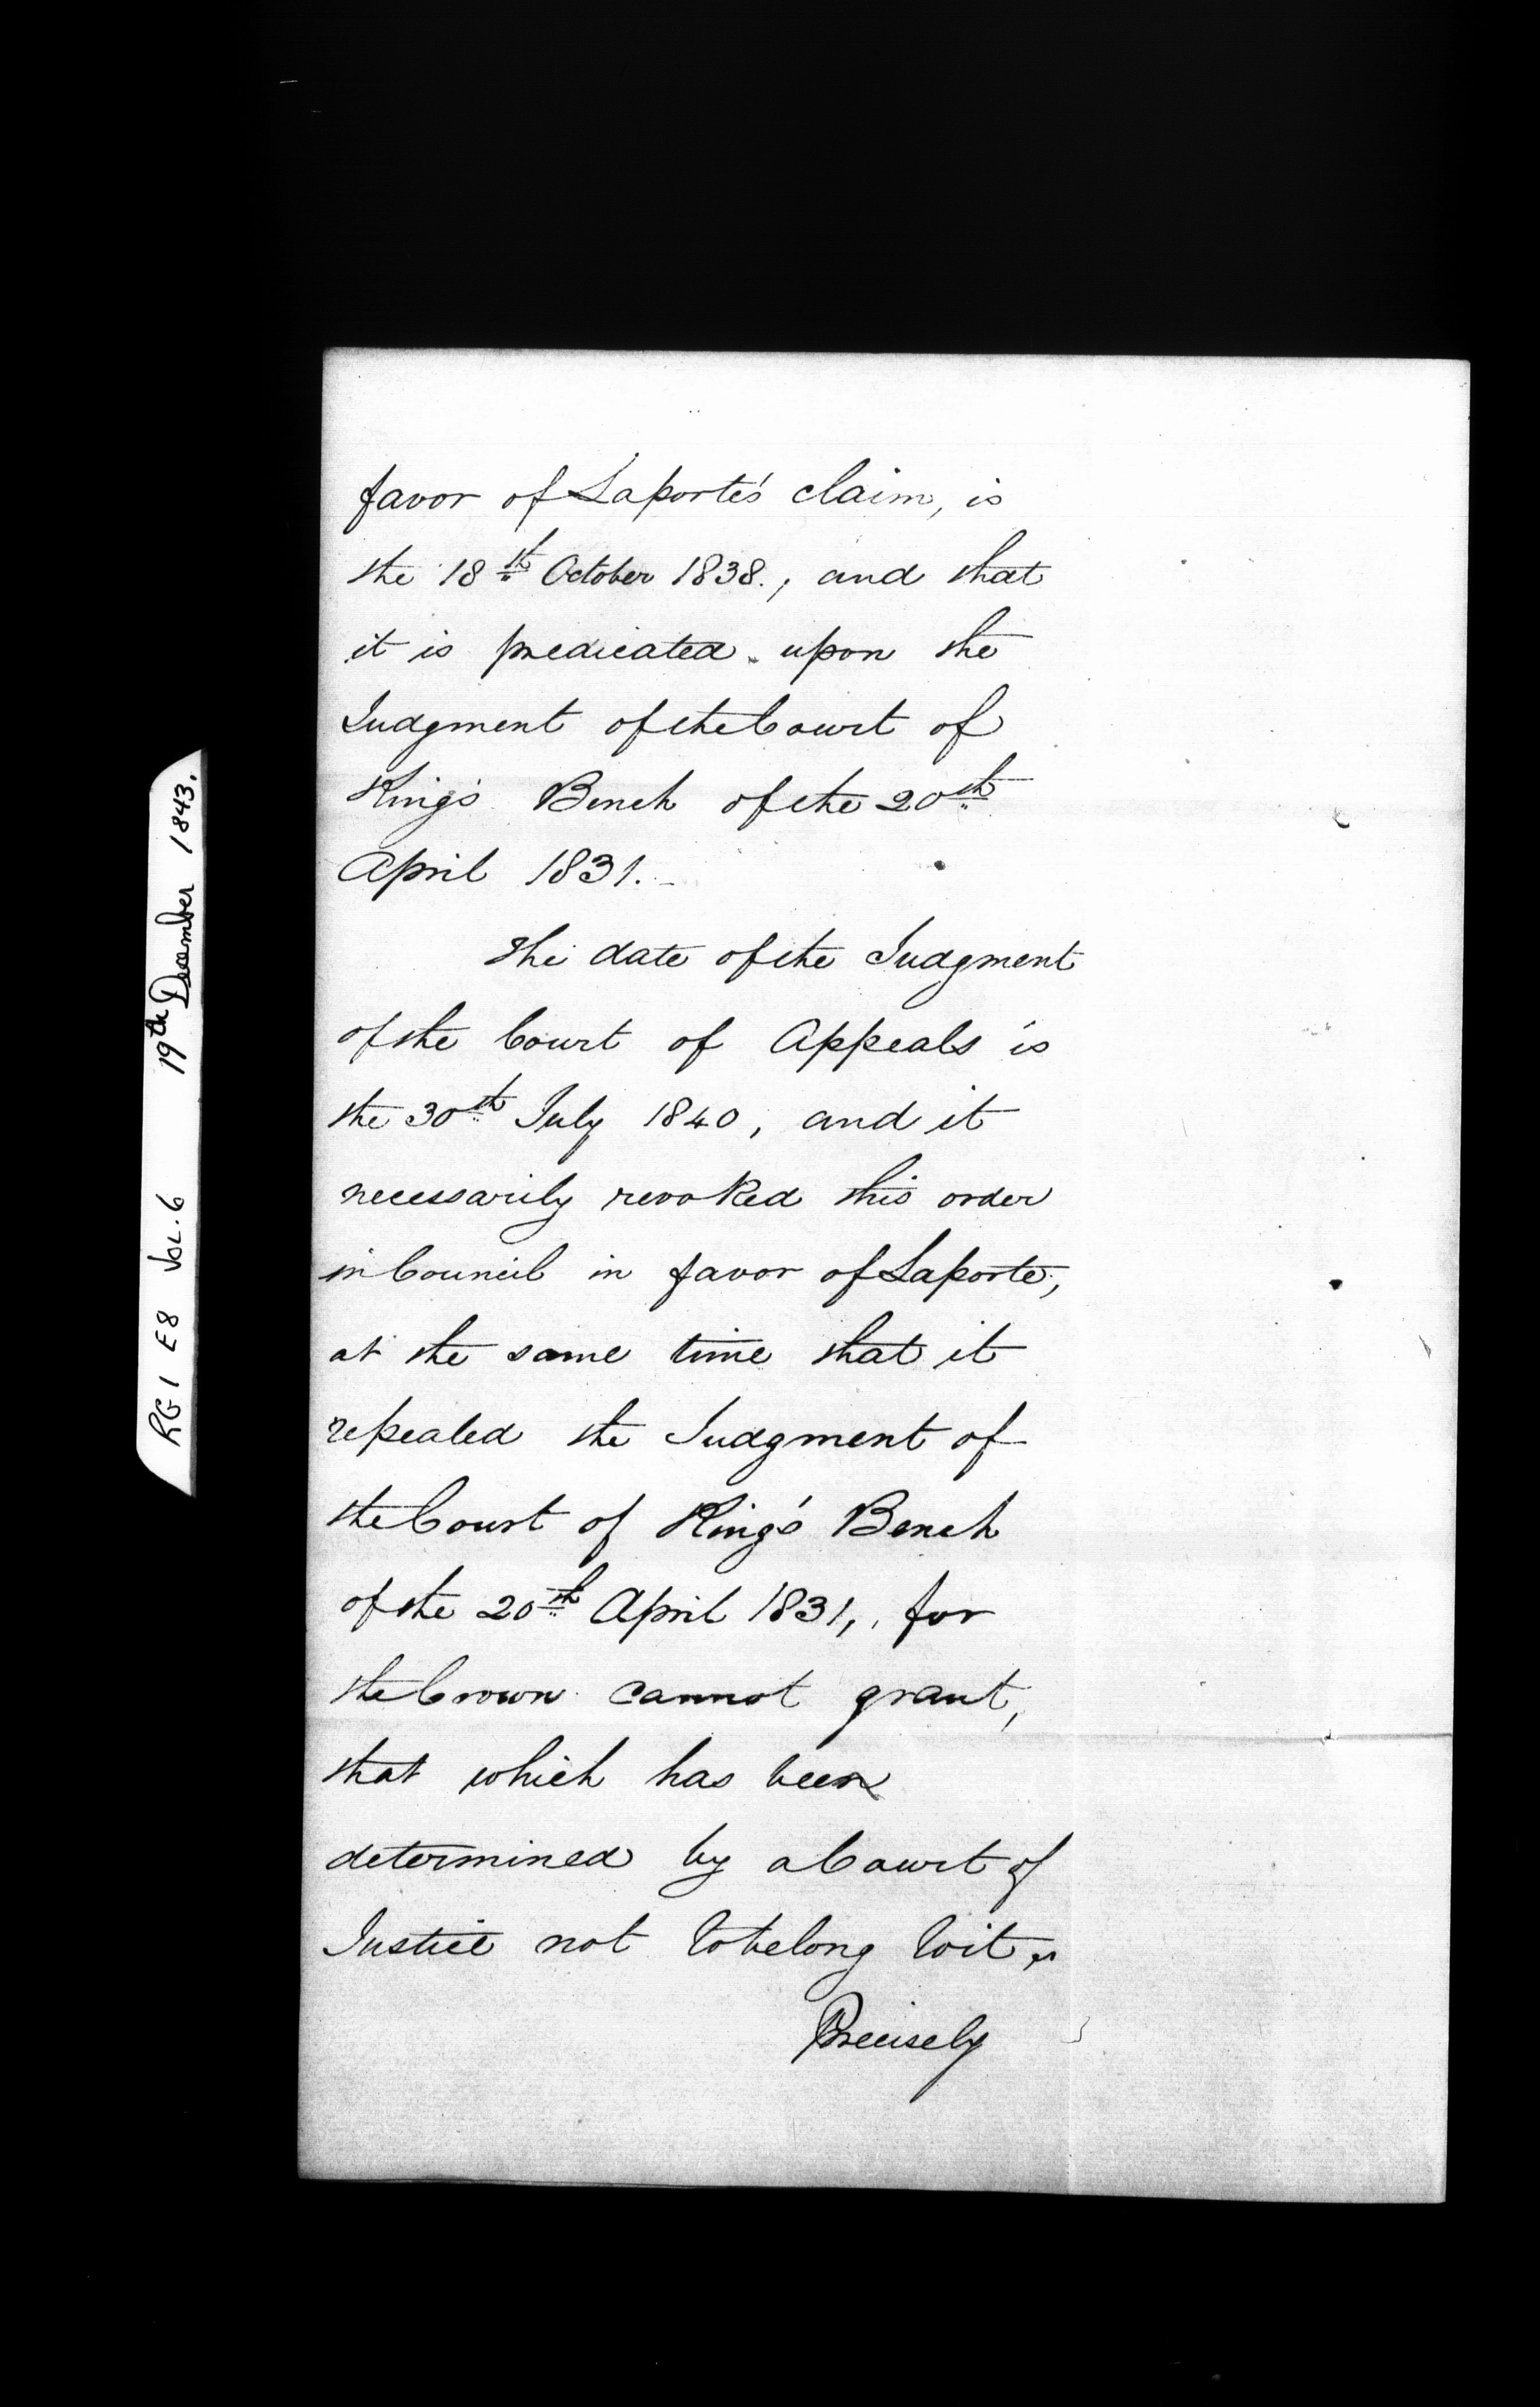 RG1 E8 VOL.6 19th December 1843.
favor of Laporte's claim, is
the 18th October 1838., and that
it is predicated upon the
Judgment of the Court of
King's Bench of the 20th
April 1831.
The date of the Judgment
of the Court of Appeals is
the 30th July 1840, and it
necessarily revoked this order
in Council in favor of Laporte,
at the same time that it
repealed the Judgment of
the Court of King's Bench
of the 20th April 1831, for
the Crown cannot grant,
that which has been
determined by a Court of
Justice not to belong to it.
Precisely